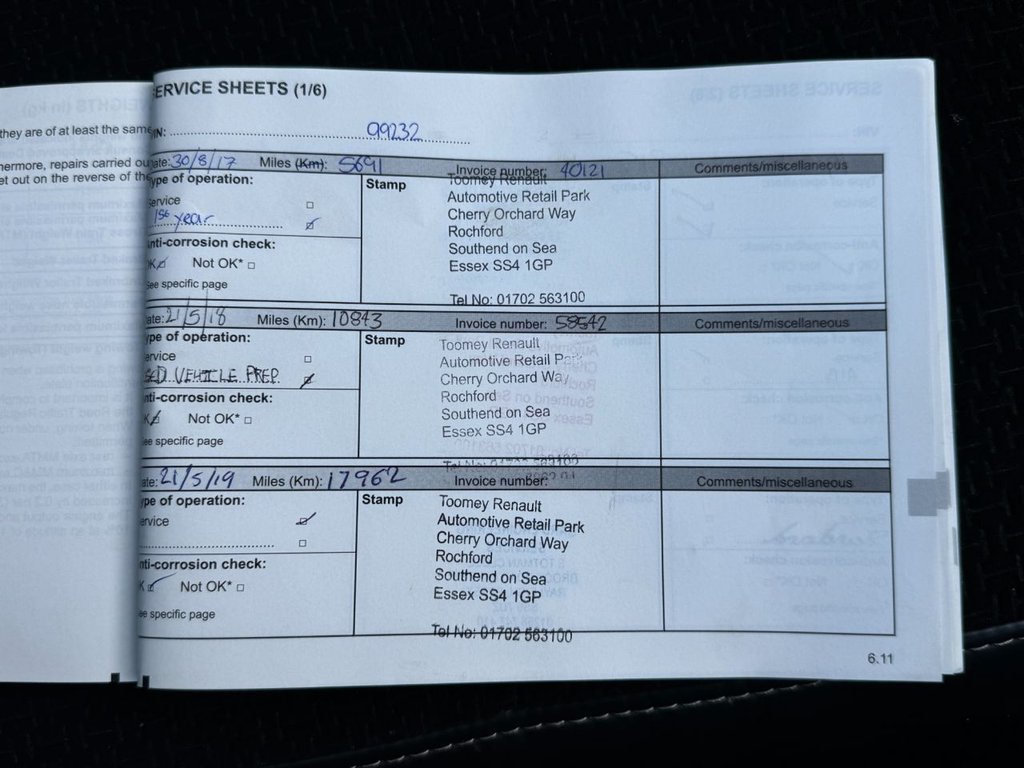 ERVICE SHEETS (1/6)
they are of at least the same
IN: 99232
hermore, repairs carried ou
et out on the reverse of the
ate: 30/8/17 Miles (Km): 5691 Invoice number: 40121 Comments/miscellaneous
ype of operation:
ervice
1st year
nti-corrosion check:
K Not OK*
ee specific page
Stamp
Toomey Renault
Automotive Retail Park
Cherry Orchard Way
Rochford
Southend on Sea
Essex SS4 1GP
Tel No: 01702 563100
ate: 21/5/18 Miles (Km): 10843 Invoice number: 58542 Comments/miscellaneous
ype of operation:
ervice
SED VEHICLE PREP
nti-corrosion check:
K Not OK*
ee specific page
Stamp
Toomey Renault
Automotive Retail Park
Cherry Orchard Way
Rochford
Southend on Sea
Essex SS4 1GP
Tel No: 01702 563100
ate: 21/5/19 Miles (Km): 17962 Invoice number: Comments/miscellaneous
ype of operation:
ervice
nti-corrosion check:
K Not OK*
ee specific page
Stamp
Toomey Renault
Automotive Retail Park
Cherry Orchard Way
Rochford
Southend on Sea
Essex SS4 1GP
Tel No: 01702 563100
6.11